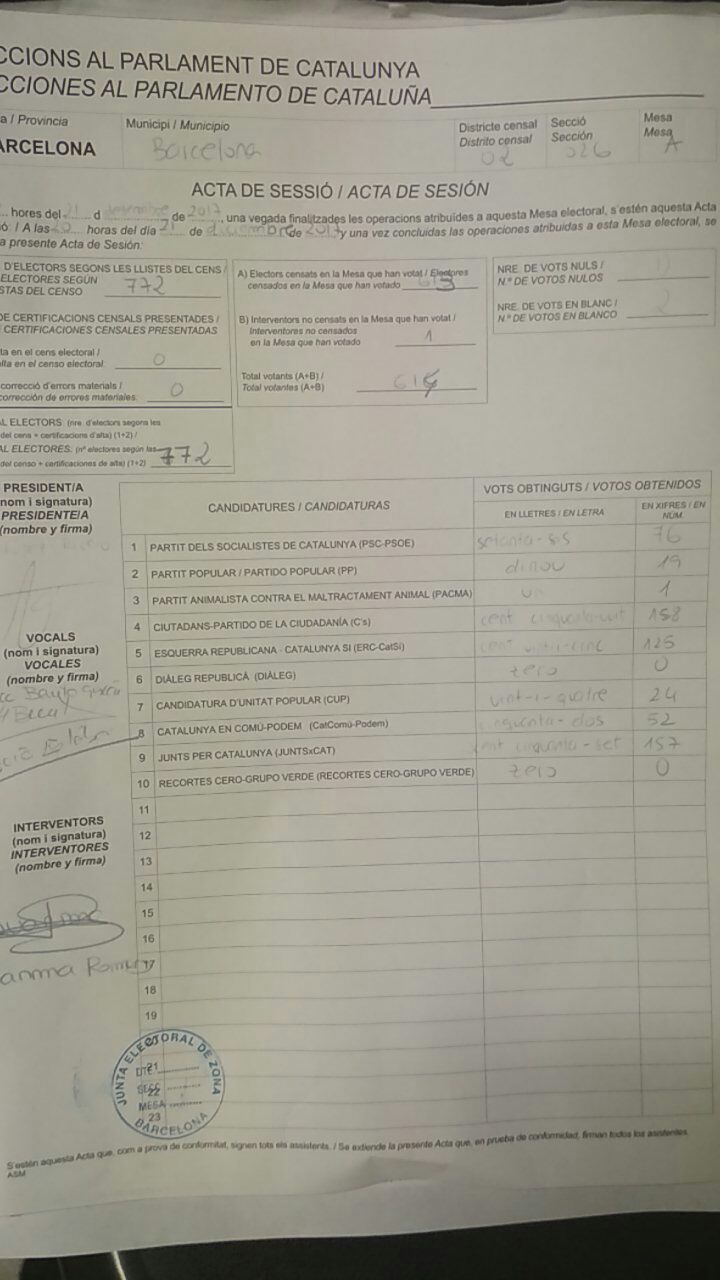 CCIONS AL PARLAMENT DE CATALUNYA
CCIONES AL PARLAMENTO DE CATALUÑA
a / Provincia
ARCELONA
Municipi / Municipio
Barcelona
Districte censal
Distrito censal
02
Secció
Sección
026
Mesa
Mesa
A
ACTA DE SESSIÓ / ACTA DE SESIÓN
hores del 21 d desembre de 2017, una vegada finalitzades les operacions atribuïdes a aquesta Mesa electoral, s'estén aquesta Acta
ó. / A las 20 horas del día 21 de diciembre de 2017 y una vez concluidas las operaciones atribuidas a esta Mesa electoral, se
a presente Acta de Sesión:
D'ELECTORS SEGONS LES LLISTES DEL CENS /
ELECTORES SEGÚN
STAS DEL CENSO 772
DE CERTIFICACIONS CENSALS PRESENTADES /
CERTIFICACIONES CENSALES PRESENTADAS
ta en el cens electoral /
lta en el censo electoral: 0
correcció d'errors materials /
corrección de errores materiales: 0
AL ELECTORS: (nre. d'electors segons les
del cens + certificacions d'alta) (1+2) /
AL ELECTORES: (nº electores según las
del censo + certificaciones de alta) (1+2) 772
A) Electors censats en la Mesa que han votat / Electores
censados en la Mesa que han votado
B) Interventors no censats en la Mesa que han votat /
Interventores no censados
en la Mesa que han votado 1
Total votants (A+B) /
Total votantes (A+B)
NRE. DE VOTS NULS /
N.º DE VOTOS NULOS
NRE. DE VOTS EN BLANC /
N.º DE VOTOS EN BLANCO 2
PRESIDENT/A
(nom i signatura)
PRESIDENTE/A
(nombre y firma)
VOCALS
(nom i signatura)
VOCALES
(nombre y firma)
INTERVENTORS
(nom i signatura)
INTERVENTORES
(nombre y firma)
CANDIDATURES / CANDIDATURAS
VOTS OBTINGUTS / VOTOS OBTENIDOS
EN LLETRES / EN LETRA
EN XIFRES / EN NÚM.
1 PARTIT DELS SOCIALISTES DE CATALUNYA (PSC-PSOE) setanta-sis 76
2 PARTIT POPULAR / PARTIDO POPULAR (PP) dinou 19
3 PARTIT ANIMALISTA CONTRA EL MALTRACTAMENT ANIMAL (PACMA) un 1
4 CIUTADANS-PARTIDO DE LA CIUDADANÍA (C's) cent cinquanta-vuit 158
5 ESQUERRA REPUBLICANA - CATALUNYA SI (ERC-CatSí) cent vint-i-cinc 125
6 DIÀLEG REPUBLICÀ (DIÀLEG) zero 0
7 CANDIDATURA D'UNITAT POPULAR (CUP) vint-i-quatre 24
8 CATALUNYA EN COMÚ-PODEM (CatComú-Podem) cinquanta-dos 52
9 JUNTS PER CATALUNYA (JUNTSxCAT) cent cinquanta-set 157
10 RECORTES CERO-GRUPO VERDE (RECORTES CERO-GRUPO VERDE) zero 0
11
12
13
14
15
16
17
18
19
JUNTA ELECTORAL DE ZONA
DTE.
SECC.
MESA
BARCELONA
21
22
23
S'estén aquesta Acta que, com a prova de conformitat, signen tots els assistents. / Se extiende la presente Acta que, en prueba de conformidad, firman todos los asistentes.
ASM